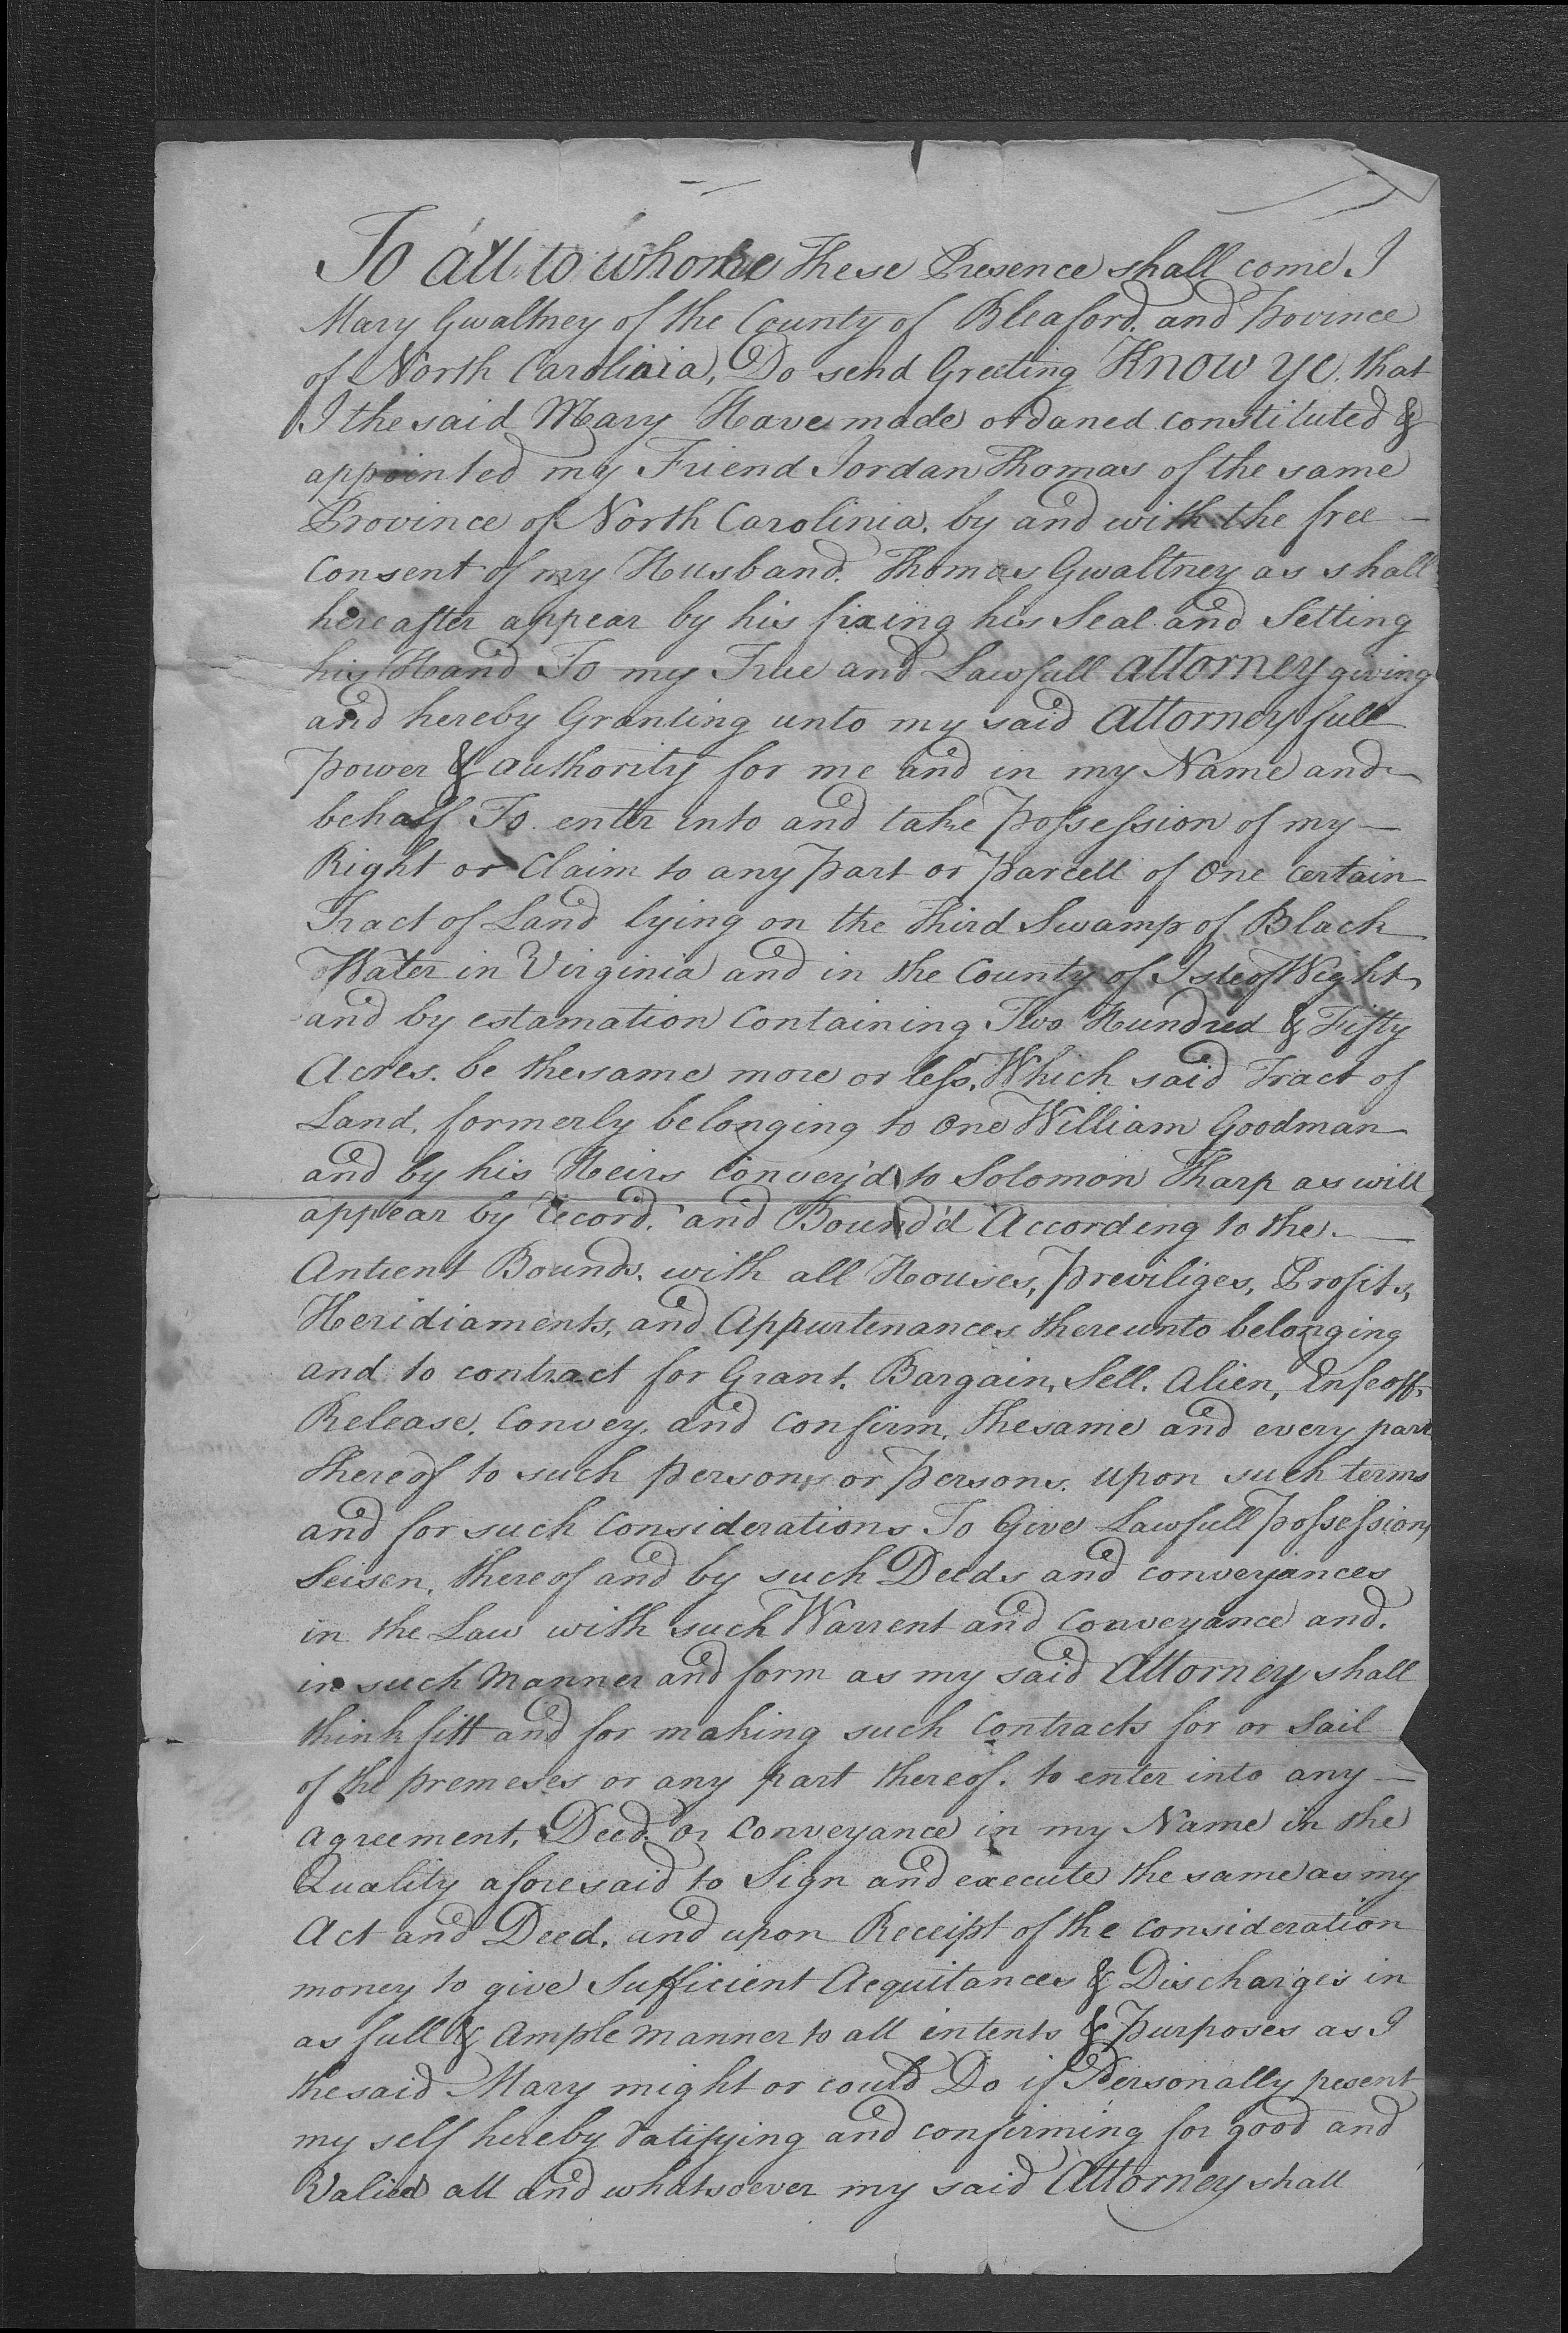 To all to whome These Presence shall come I
Mary Gwaltney of the County of Bleaford. and Povince
of North Carolinia, Do send Greeting Know ye. that
I the said Mary Have made ordaned constituted &
appointed my Friend Jordan Thomas of the same
Province of North Carolinia. by and with the free —
Consent of my Husband. Thomas Gwaltney as shall
hereafter appear by his fixing his Seal and Setting
his Hand To my True and Lawfull attorney giving
and hereby Granting unto my said attorney full
power & authority for me and in my Name and
behalf To enter into and take Possession of my —
Right or Claim to any Part or Parcell of One Certain
Tract of Land lying on the third Swamp of Black
Water in Virginia and in the County of Isle of Wight
and by estamation Containing Two Hundred & Fifty
Acres. be the same more or less. Which said Tract of
Land, formerly belonging to One William Goodman
and by his Heirs Convey'd to Solomon Tharp as will
appear by Record. and Bound'd According to the —
Antient Bounds. with all Houses, Previliges, Profits,
Heridiaments, and Appurtenances thereunto belonging
and to contract for Grant. Bargain, Sell. Alien, Enfeoff,
Release. Convey, and Confirm. the same and every part
thereof to such persons or Persons. upon such terms
and for such Considerations To Give Lawfull Possession,
Seisen, thereof and by such Deeds and conveyances
in the Law with such Warrent and Conveyance and.
in such Manner and form as my said Attorney shall
think fitt and for making such Contracts for or Sail
of the premeses or any part thereof. to enter into any —
agreement, Deed. or Conveyance in my Name in the
Quality aforesaid to Sign and execute the same as my
Act and Deed. and upon Receipt of the Consideration
money to give Sufficient Acquitances & Discharges in
as full & Ample manner to all intents & Purposes as I
the said Mary might or could Do if Personally pesent
my self hereby Ratifying and confirming for good and
Valied all and whatsoever my said Attorney shall